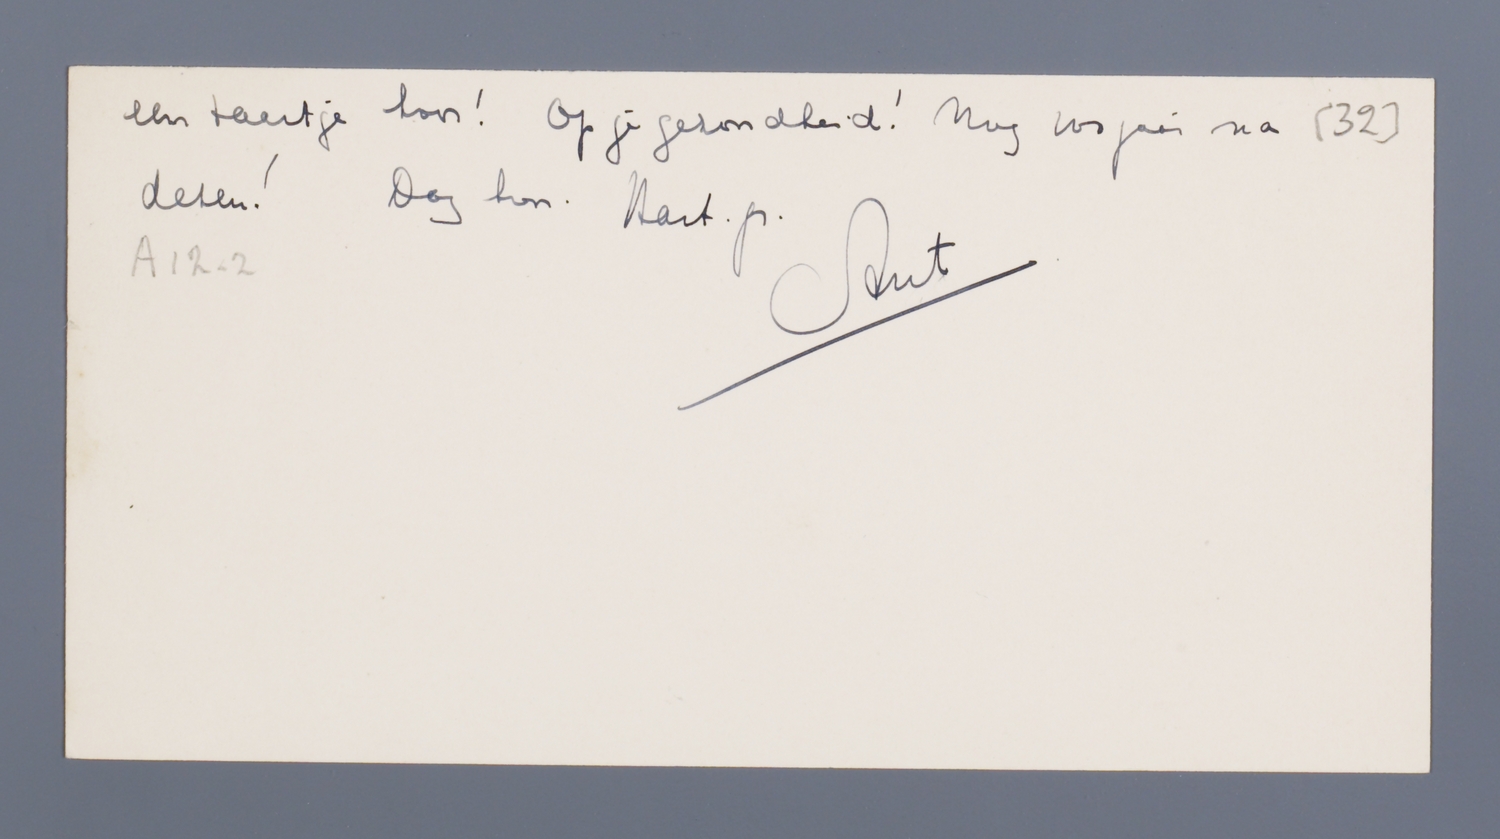 een taartje hoor! Op je gezondheid! Nog 100 jaar na [32]
dezen! Dag hoor. Hart. gr.
A12-2